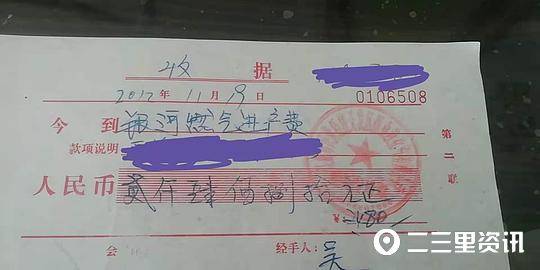 收 据
2017年 11月 9日 0106508
今 到 银河燃气进户费
款项说明
人民币 贰仟肆佰捌拾元正
¥2480
第二联
会 经手人: 吴
二三里资讯